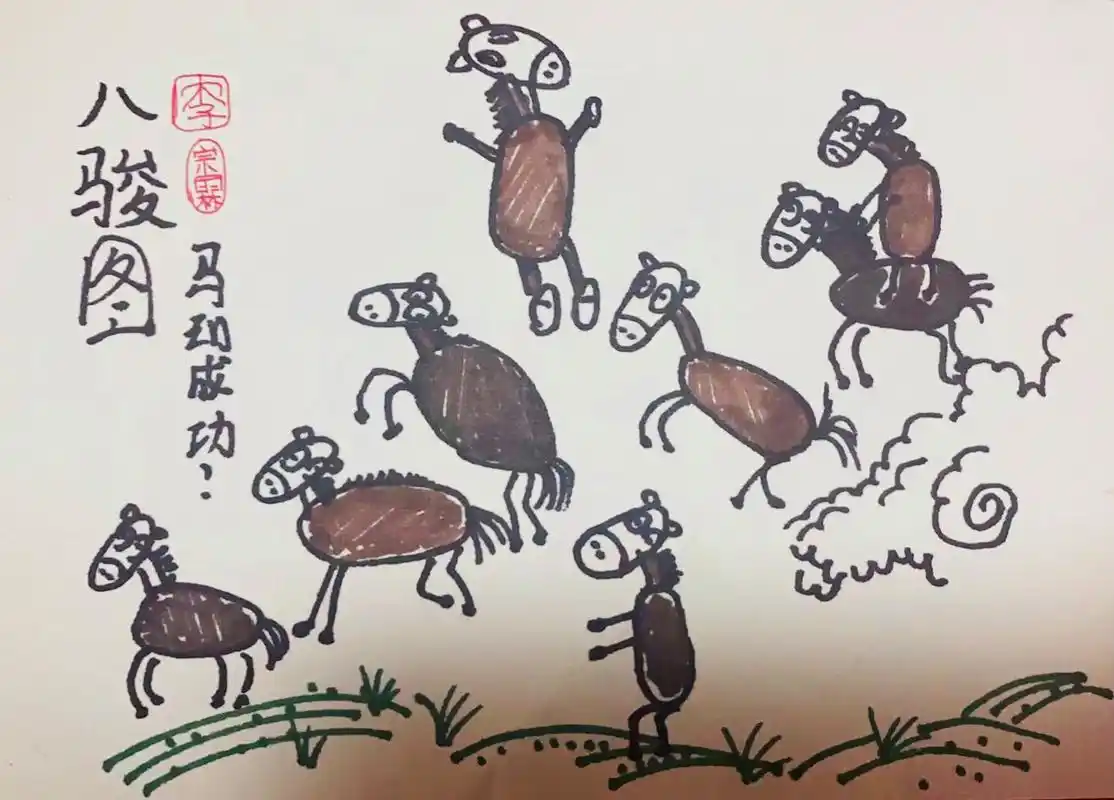 八骏图
李
宗霖
马到成功？